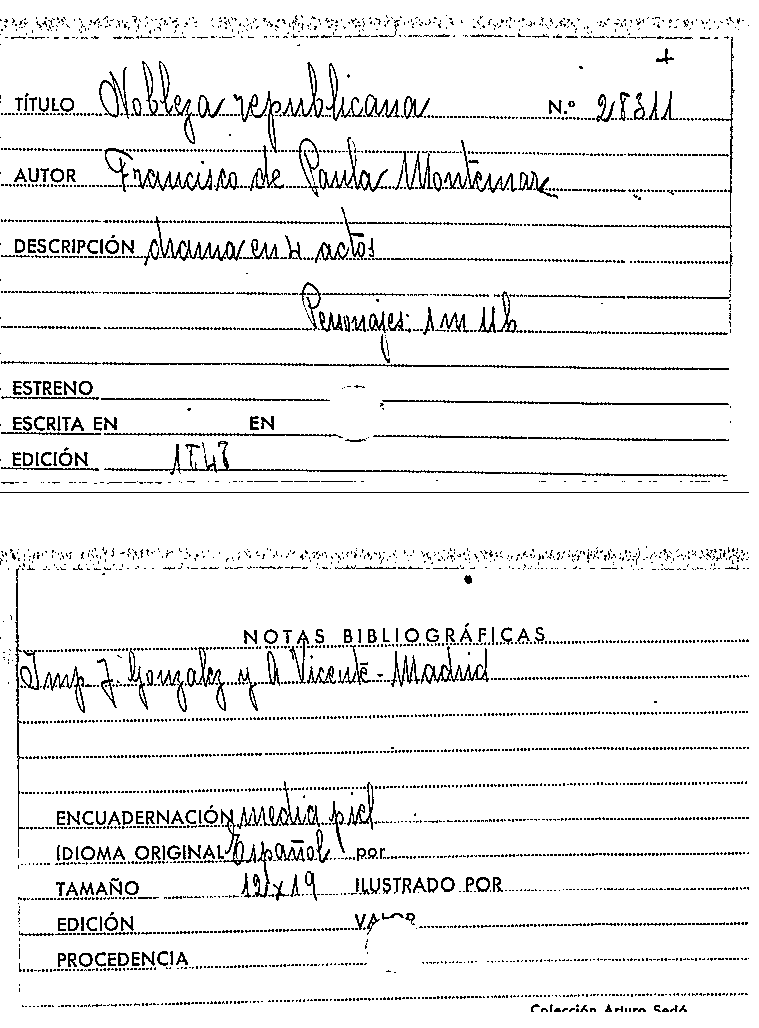 +
TÍTULO Nobleza republicana N.º 28311
AUTOR Francisco de Paula Montemar
DESCRIPCIÓN drama en 4 actos
Personajes: 1m 11h
ESTRENO
ESCRITA EN EN
EDICIÓN 1848
NOTAS BIBLIOGRÁFICAS
Imp J. Gonzalez y A Vicente - Madrid
ENCUADERNACIÓN media piel
IDIOMA ORIGINAL Español por
TAMAÑO 12x19 ILUSTRADO POR
EDICIÓN VALOR
PROCEDENCIA
Colección Arturo Sedó